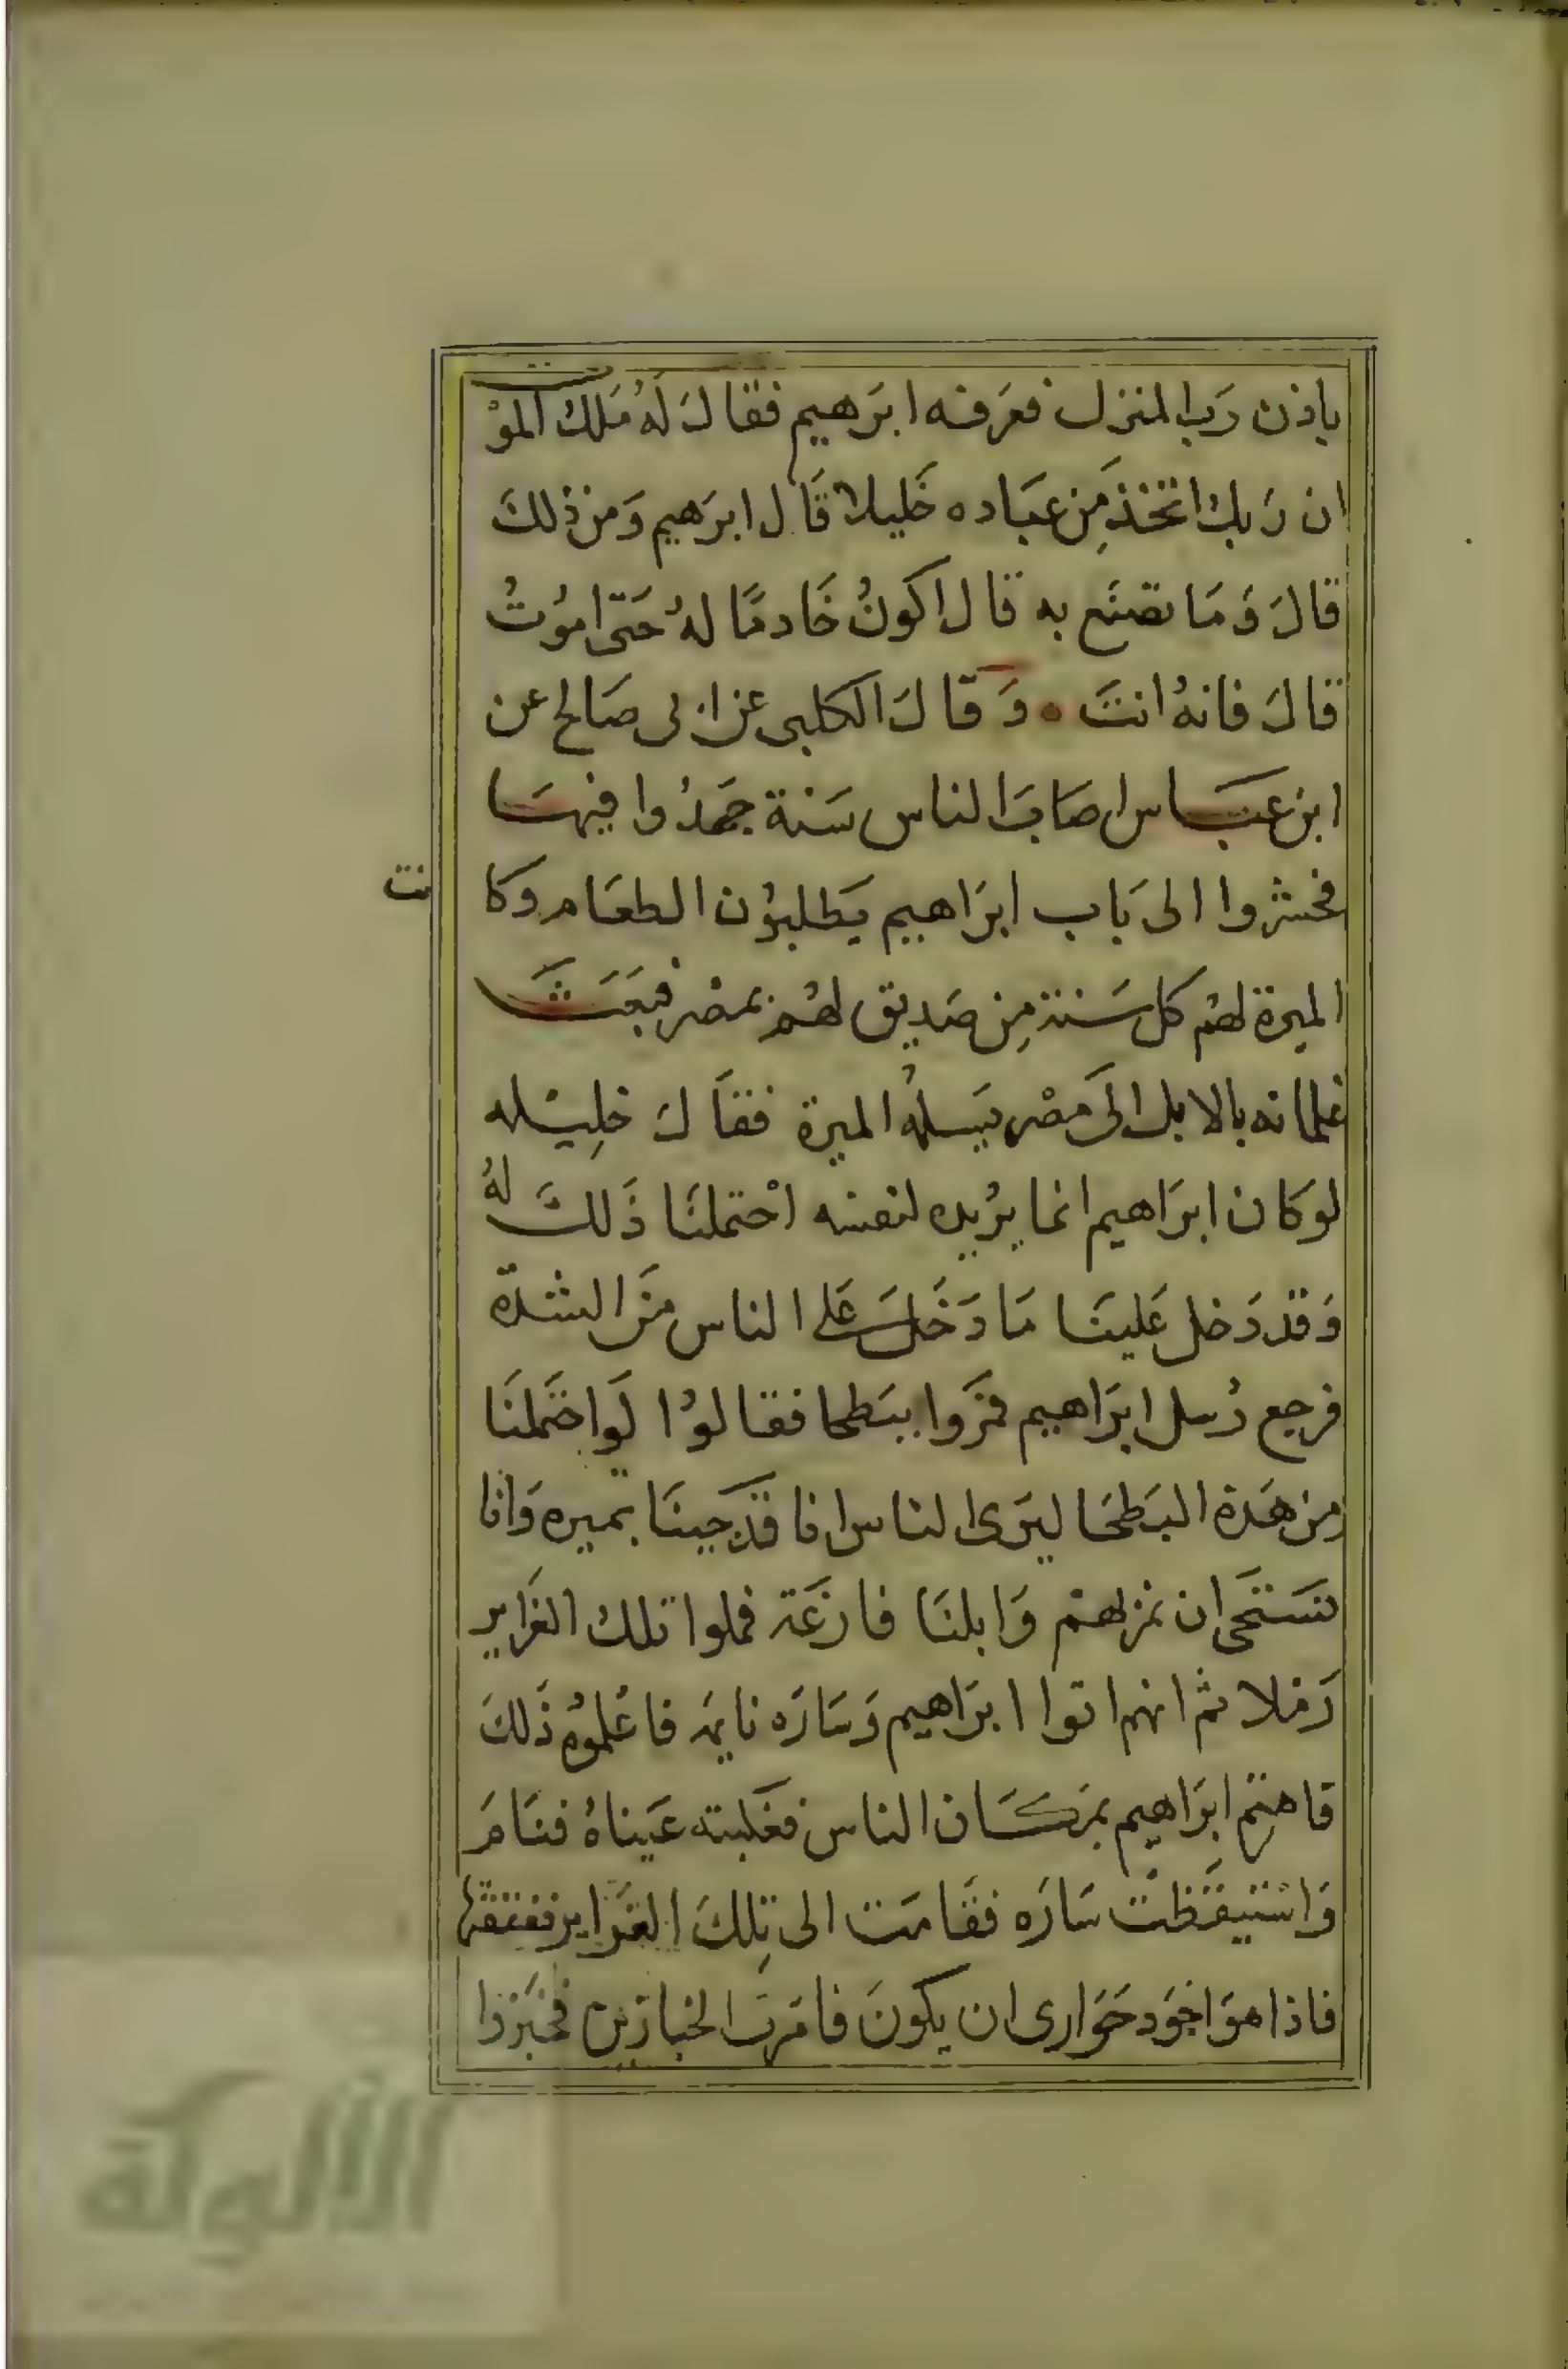 باذن رَب المنزل فعَرفه ابرَهيم فقالَ لَهُ مَلَكُ المَوْت
ان رَبكَ اتخذ مِن عبَاده خَليلا قَال ابرَهيم وَمن ذلكَ
قالَ وَمَا تصنَع به قال اكونُ خَادمًا لهُ حَتى امُوتُ
قالَ فانهُ انتَ ٥ وَقالَ الكلبى عن ابى صَالح عن
ابن عبَاس اصَابَ الناس سَنة جَهدُوا فيهَا
فحشروا الى بَاب ابرَاهيم يَطلبوُن الطعَام وكانت
الميرة لهُم كل سَنة مِن صَديق لهُم بمصْر فبَعَثَ
غلمانه بالابل الَى مصْر يَسلهُ الميرة فقاَلَ خلِيله
لوكان ابرَاهيم انما يرُيده لنفسه احْتملنَا ذَلكَ لهُ
وَقد دَخل عَلينَا مَا دَخَلَ عَلى الناس منَ الشدّة
فرجع رُسل ابرَاهيم فمرَوا ببَطحا فقالوُا لَو احتَملنَا
من هَذة البَطحَا ليَرى الناس انا قدْ جينَا بميره وَانا
نسَتحَى ان نمر بهمْ وَابلنَا فارغَة فملوا تلكُ الغرَاير
رَملا ثم انهم اتوا ابرَاهيم وَسَارَه نايمَه فاعْلموُه ذَلكَ
فاهتم ابرَاهيم بمَكَان الناس فغَلبته عَيناهُ فنَامَ
وَاسْتيقَظتْ سَارَه فقَامَت الى تِلكَ الغَرَاير ففتقتها
فاذا هوَ اجوَد حَوَارى ان يكونَ فامَرتَ الخبازَين فخبَزوا
الألوكة